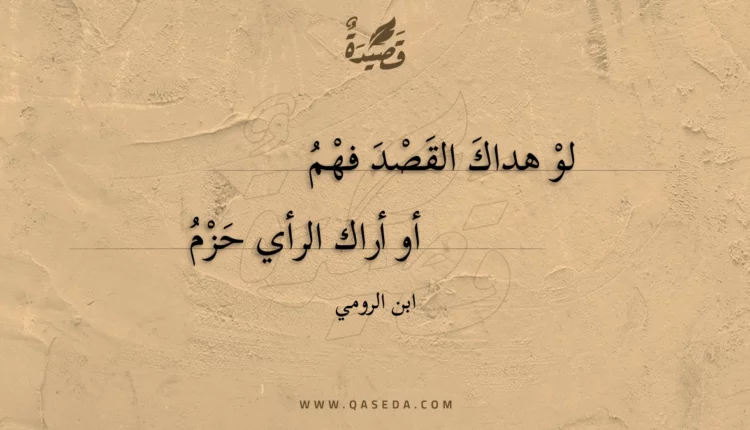 قَصِيدَةٌ
لوْ هداكَ القَصْدَ فهْمُ
أو أراك الرأي حَزْمُ
ابن الرومي
WWW.QASEDA.COM